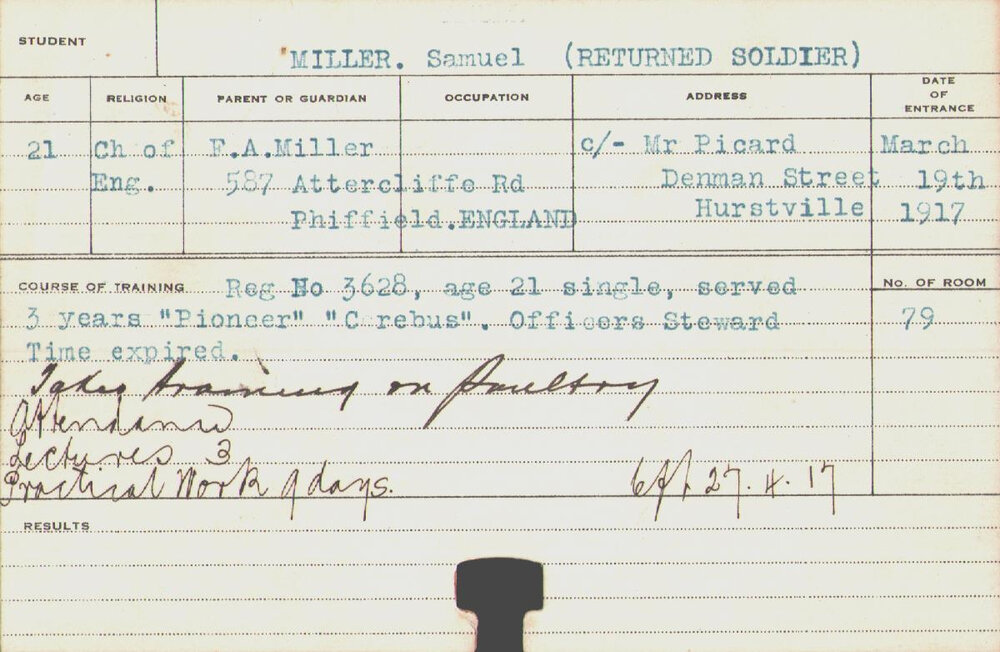 STUDENT
MILLER. Samuel (RETURNED SOLDIER)
AGE RELIGION PARENT OR GUARDIAN OCCUPATION ADDRESS DATE OF ENTRANCE
21 Ch of F.A.Miller c/- Mr Picard March
Eng. 587 Attercliffe Rd Denman Street 19th
Phiffield.ENGLAND Hurstville 1917
COURSE OF TRAINING Reg No 3628, age 21 single, served No. OF ROOM
3 years "Pioneer" "C rebus". Officers Steward 79
Time expired.
Takes training on Poultry
Attendance
Lectures 3
Practical Work 9 days. 27.4.17
RESULTS